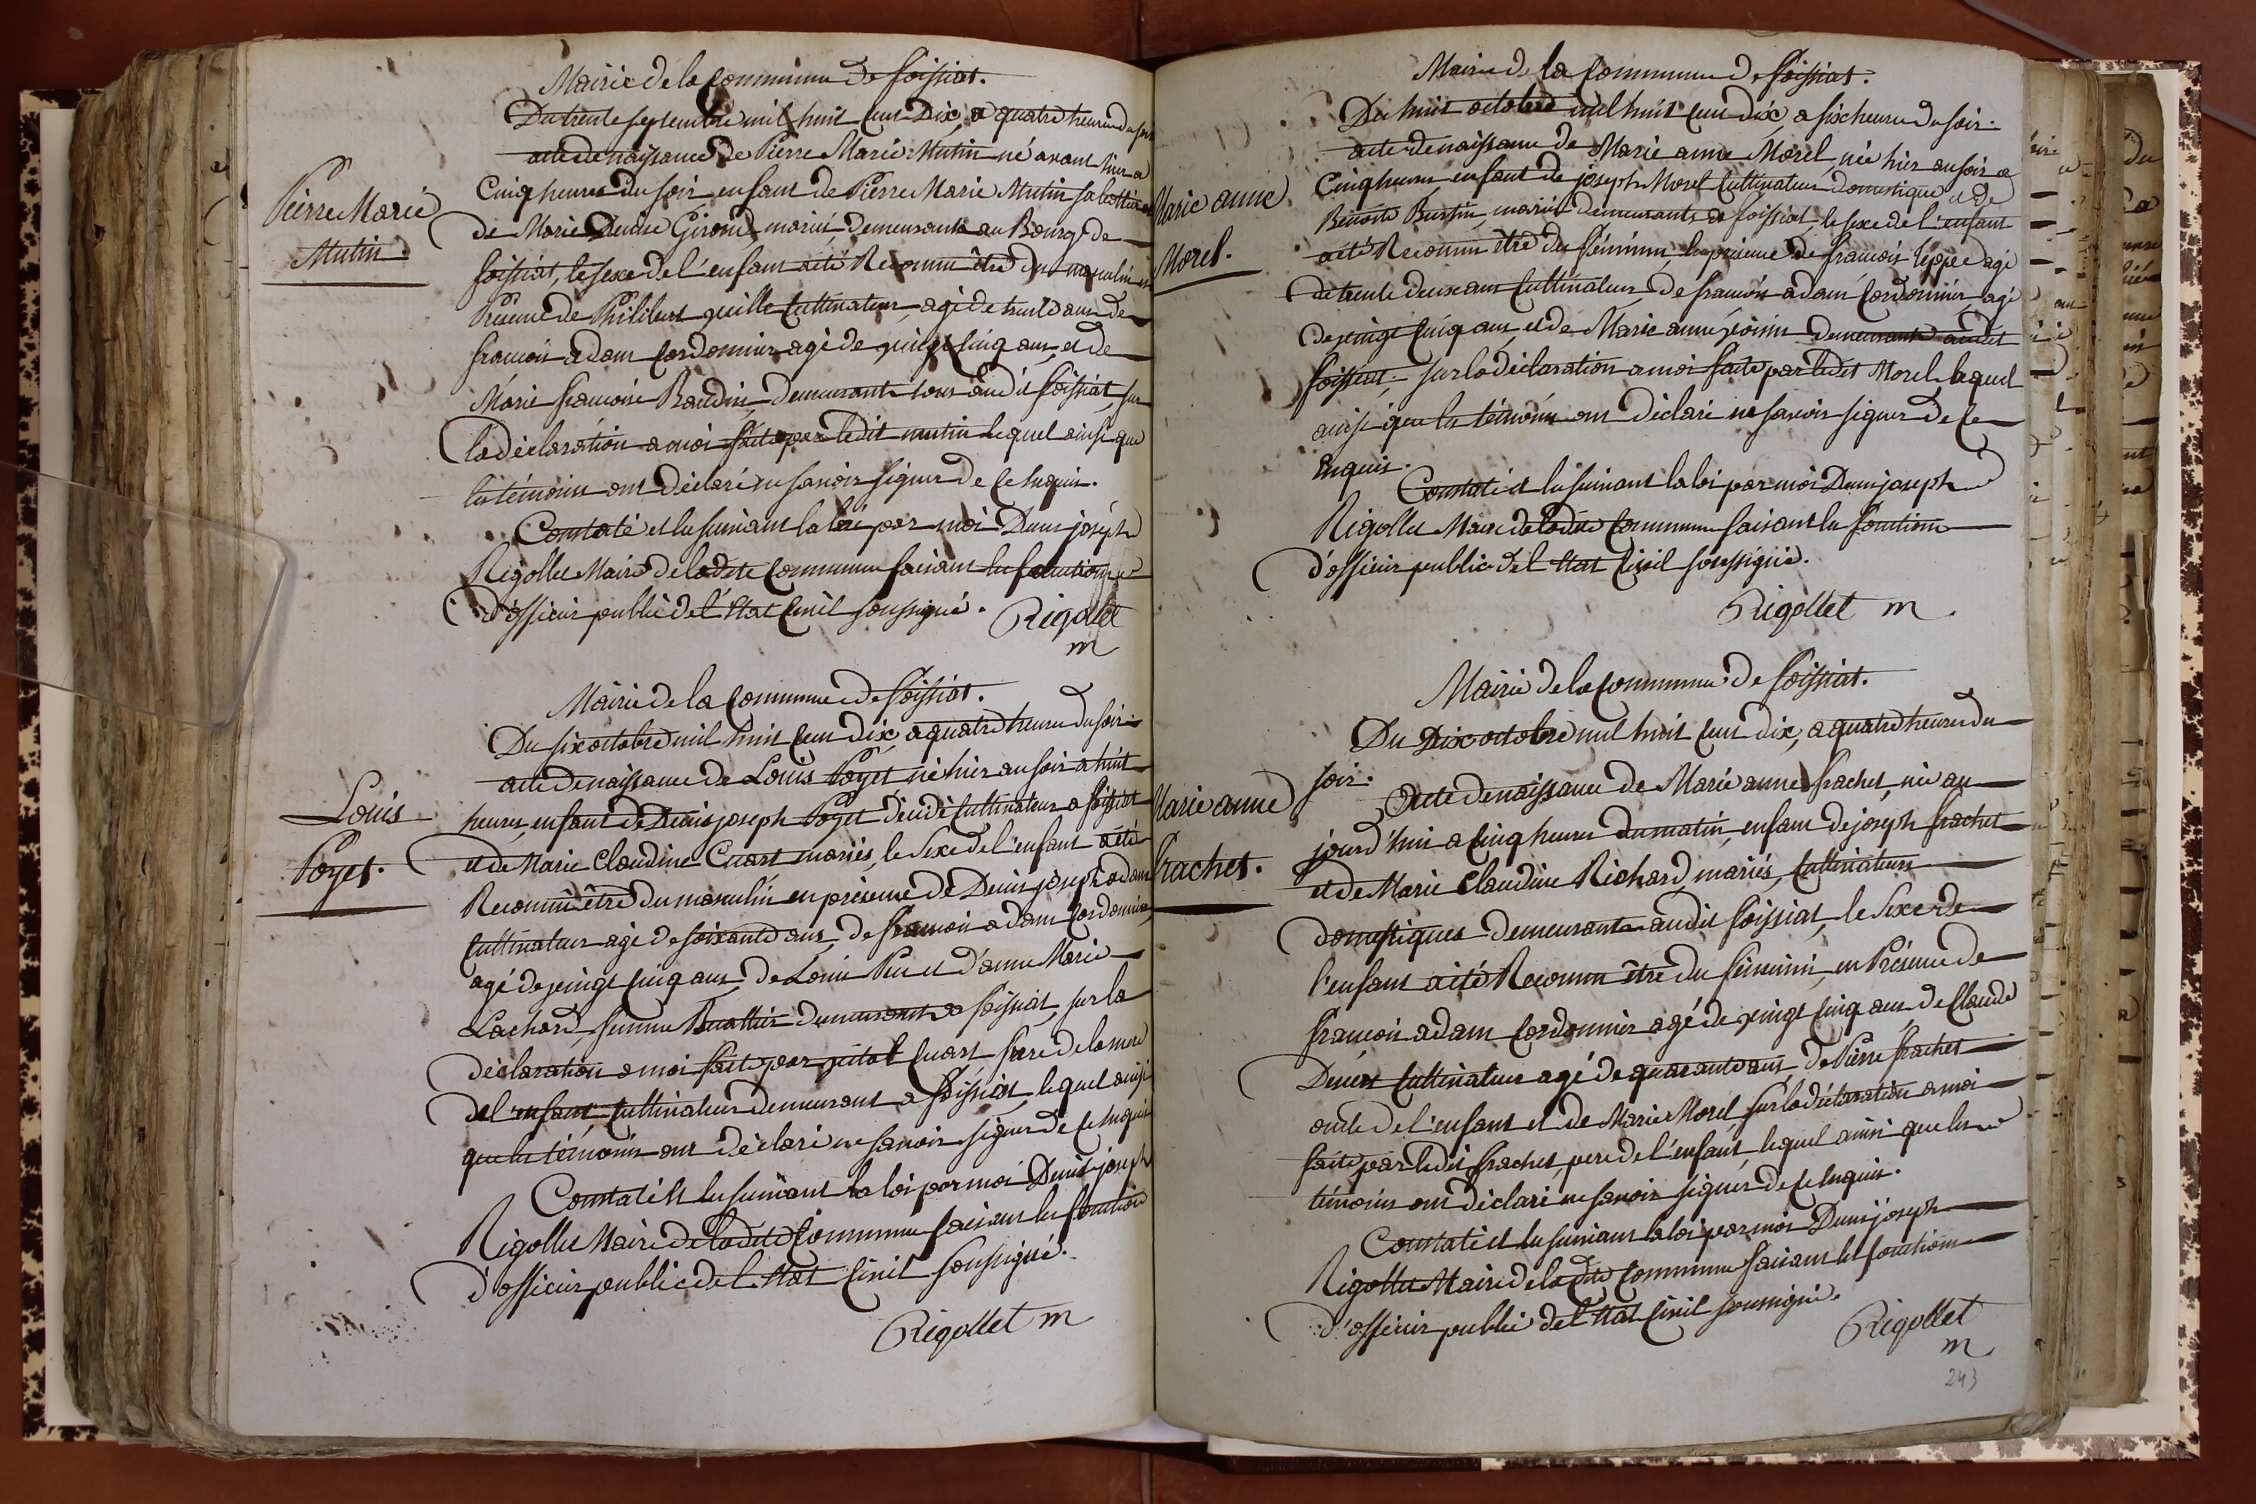 Mairie de la Commune de foissiat.
Du trente septembre mil huit cent Dix, a quatre heures du soir
acte de naissance de Pierre Marie Mutin né avant hier a
Cinq heures du soir enfant de Pierre Marie Mutin
de Marie Giroud, mariés, demeurants au Bourg de
foissiat, le sexe de l'enfant a été Reconnu être du masculin en
Présence de Philibert cultivateur, agé de trente ans de
francois adam Cordonnier agé de vingt cinq ans, et de
Marie francoise Baudin, demeurants tous audit foissiat, sur
la déclaration a moi faite par ledit mutin lequel ainsi que
les témoins ont déclaré ne savoir signer de ce Enquis.
Constaté et lu suivant la loi par moi Denis joseph
Rigollet Maire de ladite Commune faisant les fonctions
d'officier public de l'Etat Civil soussigné.
Rigollet
m
Pierre Marie
Mutin.
Mairie de la Commune de foissiat.
Du six octobre mil huit cent dix, a quatre heures du soir
acte de naissance de Louis Poyet, né hier au soir a huit
heures, enfant de Denis joseph Poyet décédé Cultivateur a foissiat
et de Marie Claudine Cuart mariés, le sexe de l'enfant a été
Reconnu être du masculin en présence de Denis joseph adam
Cultivateur agé de soixante ans, de francois adam Cordonnier
agé de vingt cinq ans, de Louis et d'anne Marie
Lachard, femme Buathier demeurants a foissiat, sur la
déclaration a moi faite par vital Cuart, frere de la mere
de l'enfant Cultivateur demeurant a foissiat, lequel ainsi
que les témoins ont déclaré ne savoir signer de ce Enquis
Constaté et lu suivant la loi par moi Denis joseph
Rigollet Maire de ladite Commune faisant les fonctions
d'officier public de l'Etat Civil soussigné.
Rigollet m
Louis
Poyet.
Mairie de la Commune de foissiat.
Du huit octobre mil huit cent dix, a six heures du soir.
acte de naissance de Marie anne Morel, née hier au soir a
Cinq heures enfant de joseph Morel Cultivateur domestique et de
Benoite mariés demeurants a foissiat, le sexe de l'enfant
a été Reconnu être du féminin, en présence de francois agé
de trente deux ans Cultivateur, de francois adam Cordonnier agé
de vingt cinq ans, et de Marie anne demeurants audit
foissiat, sur la déclaration a moi faite par ledit Morel, lequel
ainsi que les témoins ont déclaré ne savoir signer de ce
Enquis.
Constaté et lu suivant la loi par moi Denis joseph
Rigollet Maire de ladite Commune faisant les fonctions
d'officier public de l'Etat Civil soussigné.
Rigollet m
Marie anne
Morel.
Mairie de la Commune de foissiat.
Du Dix octobre mil huit cent dix, a quatre heures du
soir.
Acte de naissance de Marie anne frachet, née au
jourd'hui a Cinq heures du matin, enfant de joseph frachet
et de Marie Claudine Richard, mariés, Cultivateurs
domestiques demeurants audit foissiat, le sexe de
l'enfant a été Reconnu être du féminin, en Présence de
francois adam Cordonnier agé de vingt cinq ans de Claude
Cultivateur agé de quarante ans, de Pierre frachet
oncle de l'enfant et de Marie Morel, sur la déclaration a moi
faite par ledit frachet, pere de l'enfant, lequel ainsi que les
témoins ont déclaré ne savoir signer de ce Enquis.
Constaté et lu suivant la loi par moi Denis joseph
Rigollet Maire de ladite Commune faisant les fonctions
d'officier public de l'Etat Civil soussigné.
Rigollet
m
Marie anne
frachet.
243